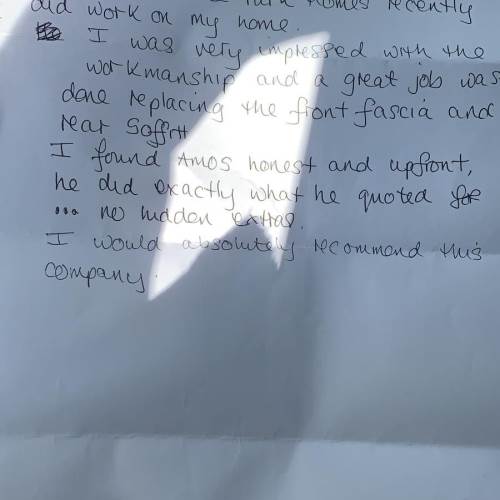 did work on my home.
I was very impressed with the
workmanship and a great job was
done replacing the front fascia and
rear Soffit
I found Amos honest and upfront,
he did exactly what he quoted for
... no hidden extras.
I would absolutely recommend this
company.